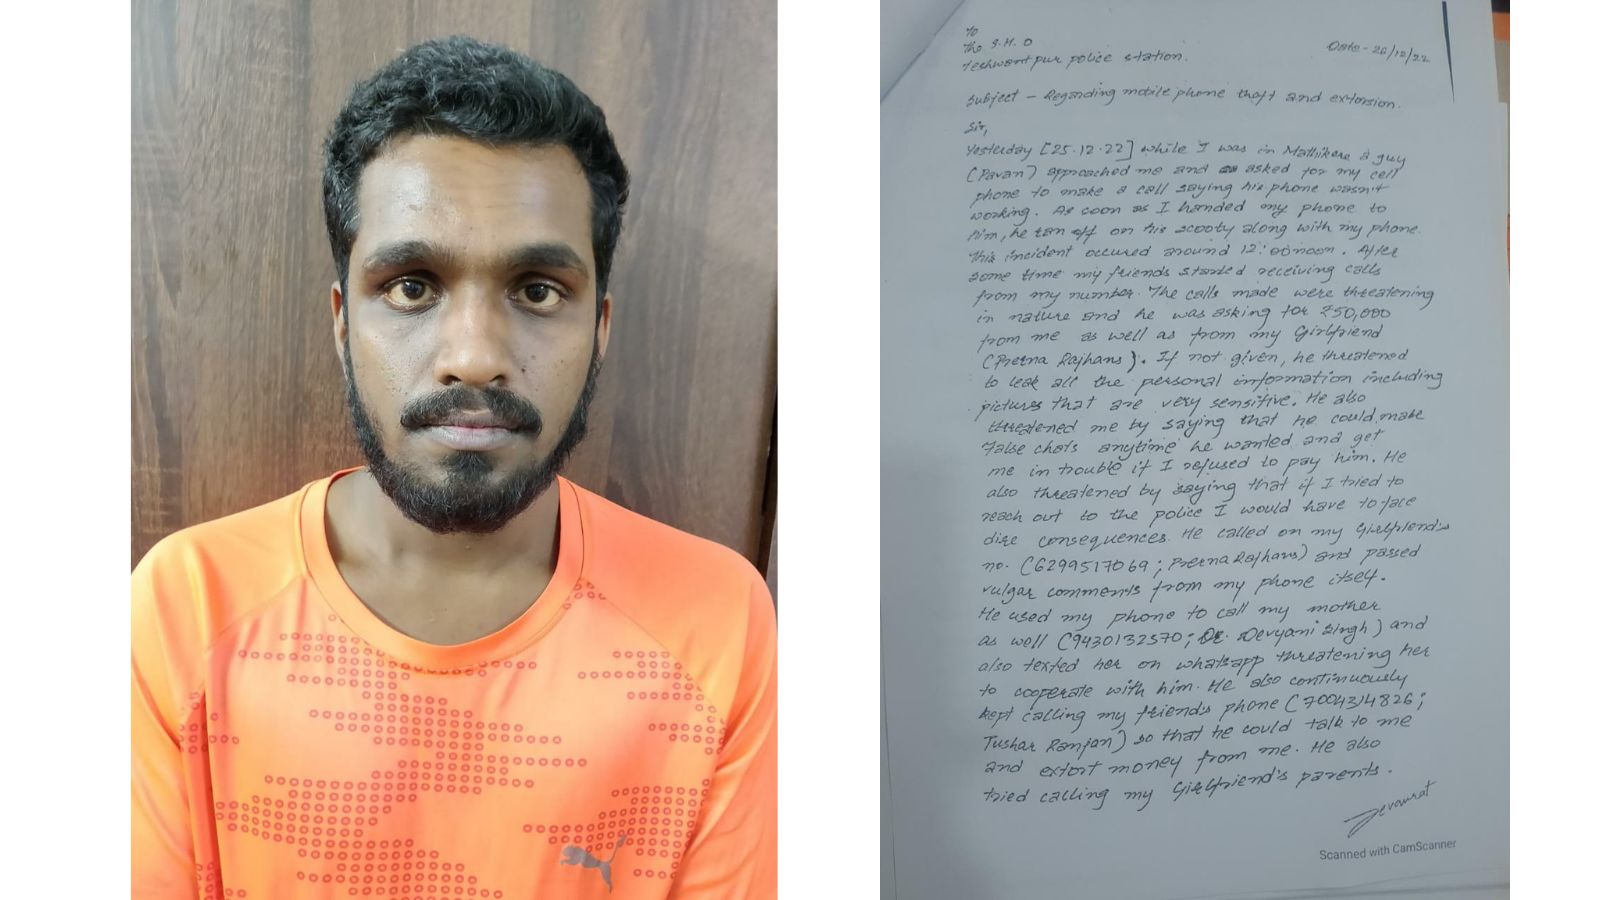 To
The S.H.O
Yeshwantpur police station.
Date - 26/12/22
Subject - Regarding mobile phone theft and extorsion.
Sir,
Yesterday [25.12.22] while I was in Mathikere a guy
(Pavan) approached me and asked for my cell
phone to make a call saying his phone wasn't
working. As soon as I handed my phone to
him, he ran off on his scooty along with my phone.
This incident occured around 12:00noon. After
some time my friends started receiving calls
from my number. The calls made were threatening
in nature and he was asking for ₹50,000
from me as well as from my Girlfriend
(Prerna Rajhans). If not given, he threatened
to leak all the personal information including
pictures that are very sensitive. He also
threatened me by saying that he could make
False chats anytime he wanted and get
me in trouble if I refused to pay him. He
also threatened by saying that if I tried to
reach out to the police I would have to face
dire consequences. He called on my Girlfriend's
no. (6299517069; Prerna Rajhans) and passed
vulgar comments from my phone itself.
He used my phone to call my mother
as well (9430132570; Dr. Devyani Singh) and
also texted her on whatsapp threatening her
to cooperate with him. He also continuously
kept calling my friend's phone (7004314826;
Tushar Ranjan) so that he could talk to me
and extort money from me. He also
tried calling my Girlfriend's parents.
Devavrat
Scanned with CamScanner